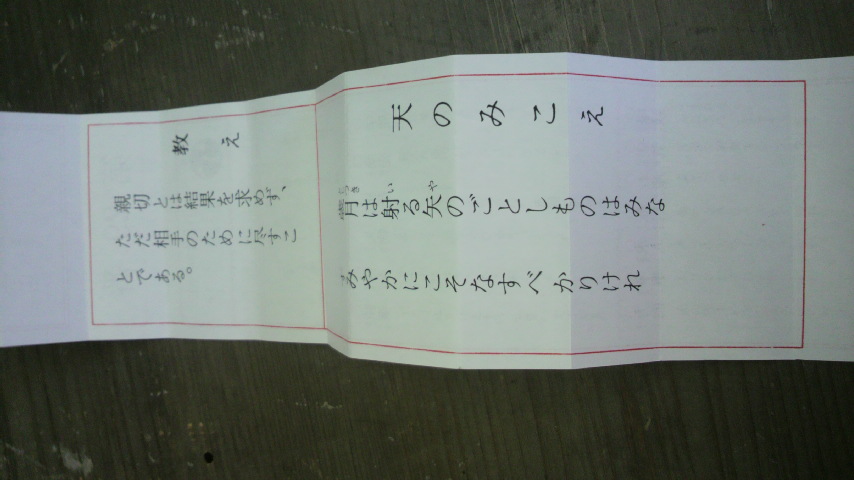 教え
親切とは結果を求めず、
ただ相手のために尽すこ
とである。
天のみこえ
歳月は射る矢のごとしものはみな
すみやかにこそなすべかりけれ